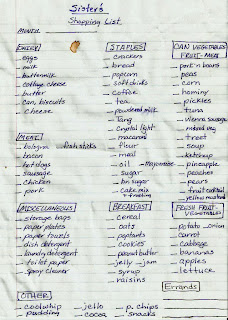 Sister's
Shopping List
MONTH
DAIRY
eggs
milk
buttermilk
cottage cheese
butter
can biscuits
cheese
MEAT
bologna fish sticks
bacon
hotdogs
sausage
chicken
pork
MISCELLANEOUS
storage bags
paper plates
paper towels
dish detergent
laundry detergent
toilet paper
spray cleaner
OTHER
coolwhip jello p. chips
pudding cocoa snacks
STAPLES
crackers
bread
popcorn
soft drinks
coffee
tea
powdered milk
Tang
Crystal light
flour
meal
oil Mayonnaise
sugar
br. sugar
cake mix
+ frosting
BREAKFAST
cereal
oats
poptarts
cookies
peanut butter
jelly jam
syrup
raisins
CAN VEGETABLES
FRUIT - MEAT
pork n beans
peas
corn
hominy
pickles
tuna
vienna sausage
mixed veg
treet
soup
ketchup
pineapple
peaches
pears
fruit cocktail
yellow mustard
FRESH FRUIT
VEGETABLES
potato onion
carrot
cabbage
bananas
apples
lettuce
Errands